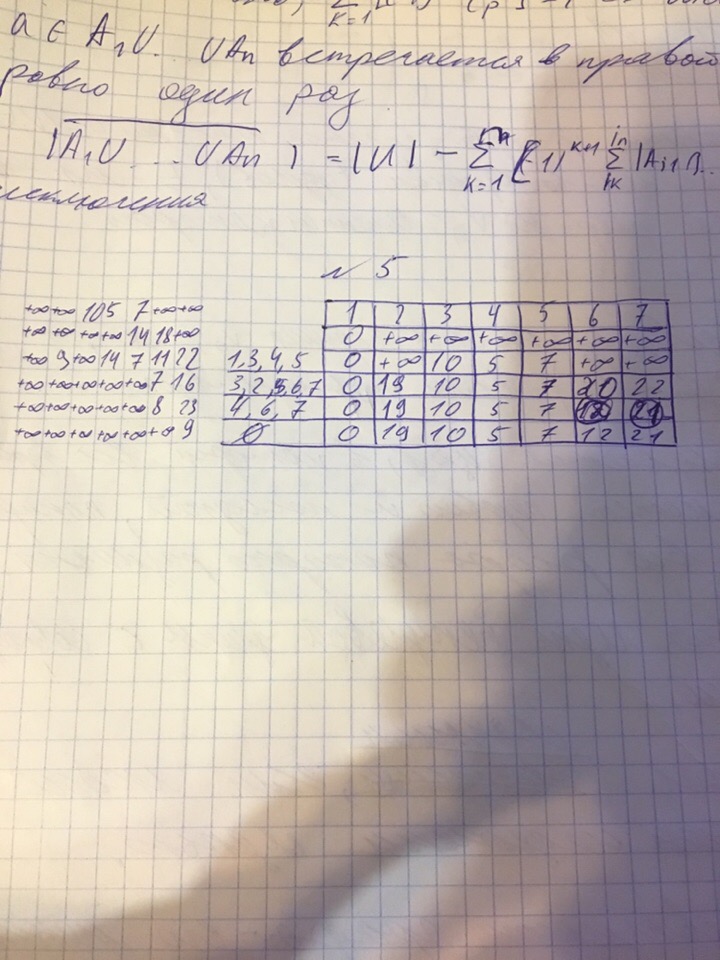 a ∈ A₁U... UAn встречается в правой
равно один раз
|A₁U...UAn| = |U| - Σ K=1 (-1)ᵏ⁺¹ Σ |Ai₁∩..
исключения
№ 5
+∞ +∞ 10 5 7 +∞ +∞
+∞ +∞ +∞ +∞ 14 18 +∞
+∞ 9 +∞ 14 7 11 22
+∞ +∞ +∞ +∞ +∞ 7 16
+∞ +∞ +∞ +∞ +∞ 8 23
+∞ +∞ +∞ +∞ +∞ +∞ 9
1 2 3 4 5 6 7
0 +∞ +∞ +∞ +∞ +∞ +∞
1,3,4,5 0 +∞ 10 5 7 +∞ +∞
3,2,5,6,7 0 19 10 5 7 20 22
4,6,7 0 19 10 5 7 12 21
∅ 0 19 10 5 7 12 21